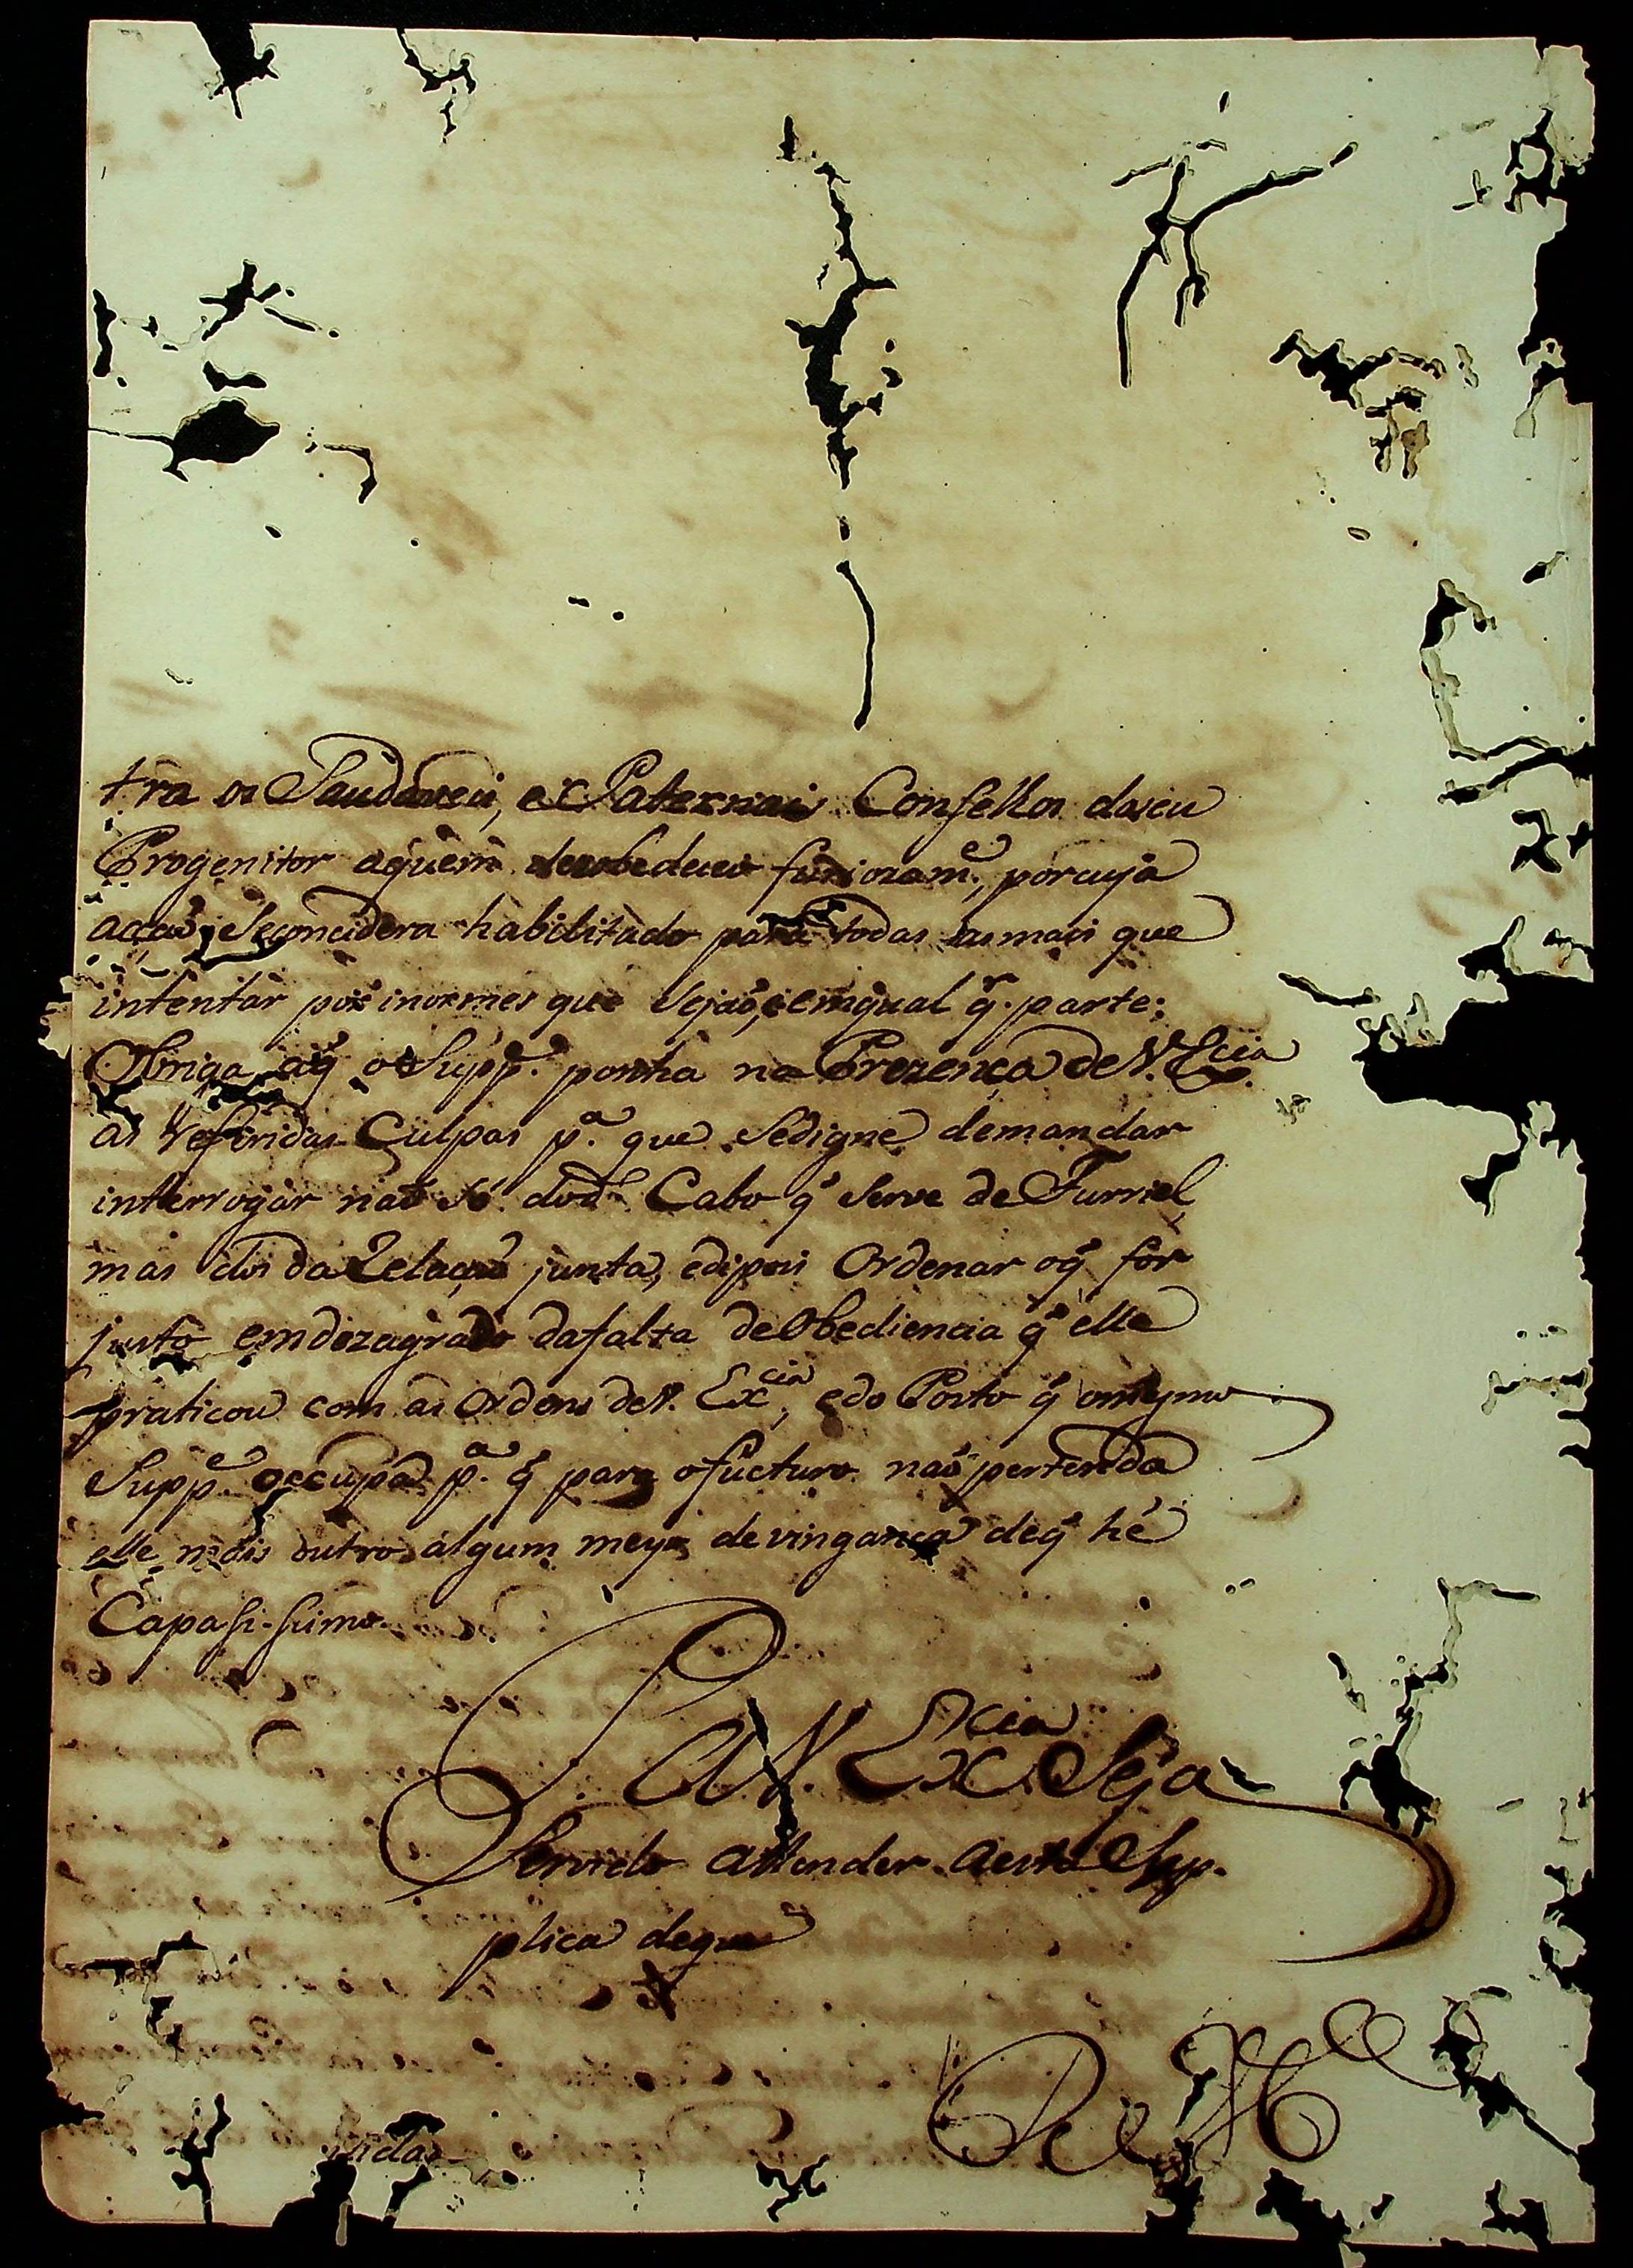 tra os Saudaveis, e Paternais Conselhos doseu
Progenitor aquem desobedeceo furiozam.e, porcuja
accaõ, Seconcidera habilitado para todas asmais que
intentar por inormes que Sejaõ, eemqual q.r parte;
Obriga aq̃ o Supp.e ponha na Prezença deV. Ex.cia
as referidas Culpas p.a que Sedigne demandar
interrogar naõ Só dod.o Cabo q̃ Serve de Furriel
mas dos da Relaçaõ junta, edipois Ordenar oq̃ for
justo emdezagravo dafalta deObediencia q̃ elle
praticou com as Ordens deV. Ex.cia, edo Posto q̃ omesmo
Supp.e occupa p.a q̃ para ofucturo naõ pertenda
elle mais outro algum meyo devingança deq̃ hé
Capasissimo.
P. aV. Ex.cia Seja
Servido attender aesta Sup-
plica deque
R. M.ce